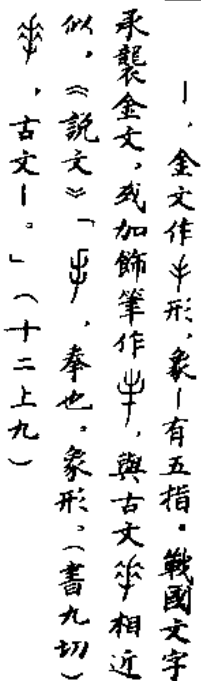 丨，金文作形，象丨有五指。戰國文字
承襲金文，或加飾筆作，與古文相近
似。《說文》「，拳也。象形。（書九切）
，古文丨。」（十二上九）